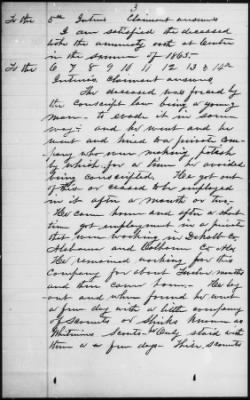 3
To the 5th Intrus Claimant answers
I am satisfied the deceased
took the amnesty oath at Center
in the summer of 1865 -
To the 6 7 8 9 10 11 12 13 & 14th
Intrus Claimant answers
The deceased was forced by
the conscript law being a young
man - to evade it in some
way - and he went and he
went and hired to a private com-
pany who were making potash
by which for a time he avoided
being conscripted. He got out
of this or ceased to be employed
in it after a month or two -
He came home and after a short
time got employment in a private
that were working in Dekalb Co
Alabama and Calhoun Co Ala
He remained working for this
company for about twelve months
and then came home - He lay
out and when found he went
a few day with a little company
of scouts or known as
Scouts - Only staid with
them a a few days - These scouts